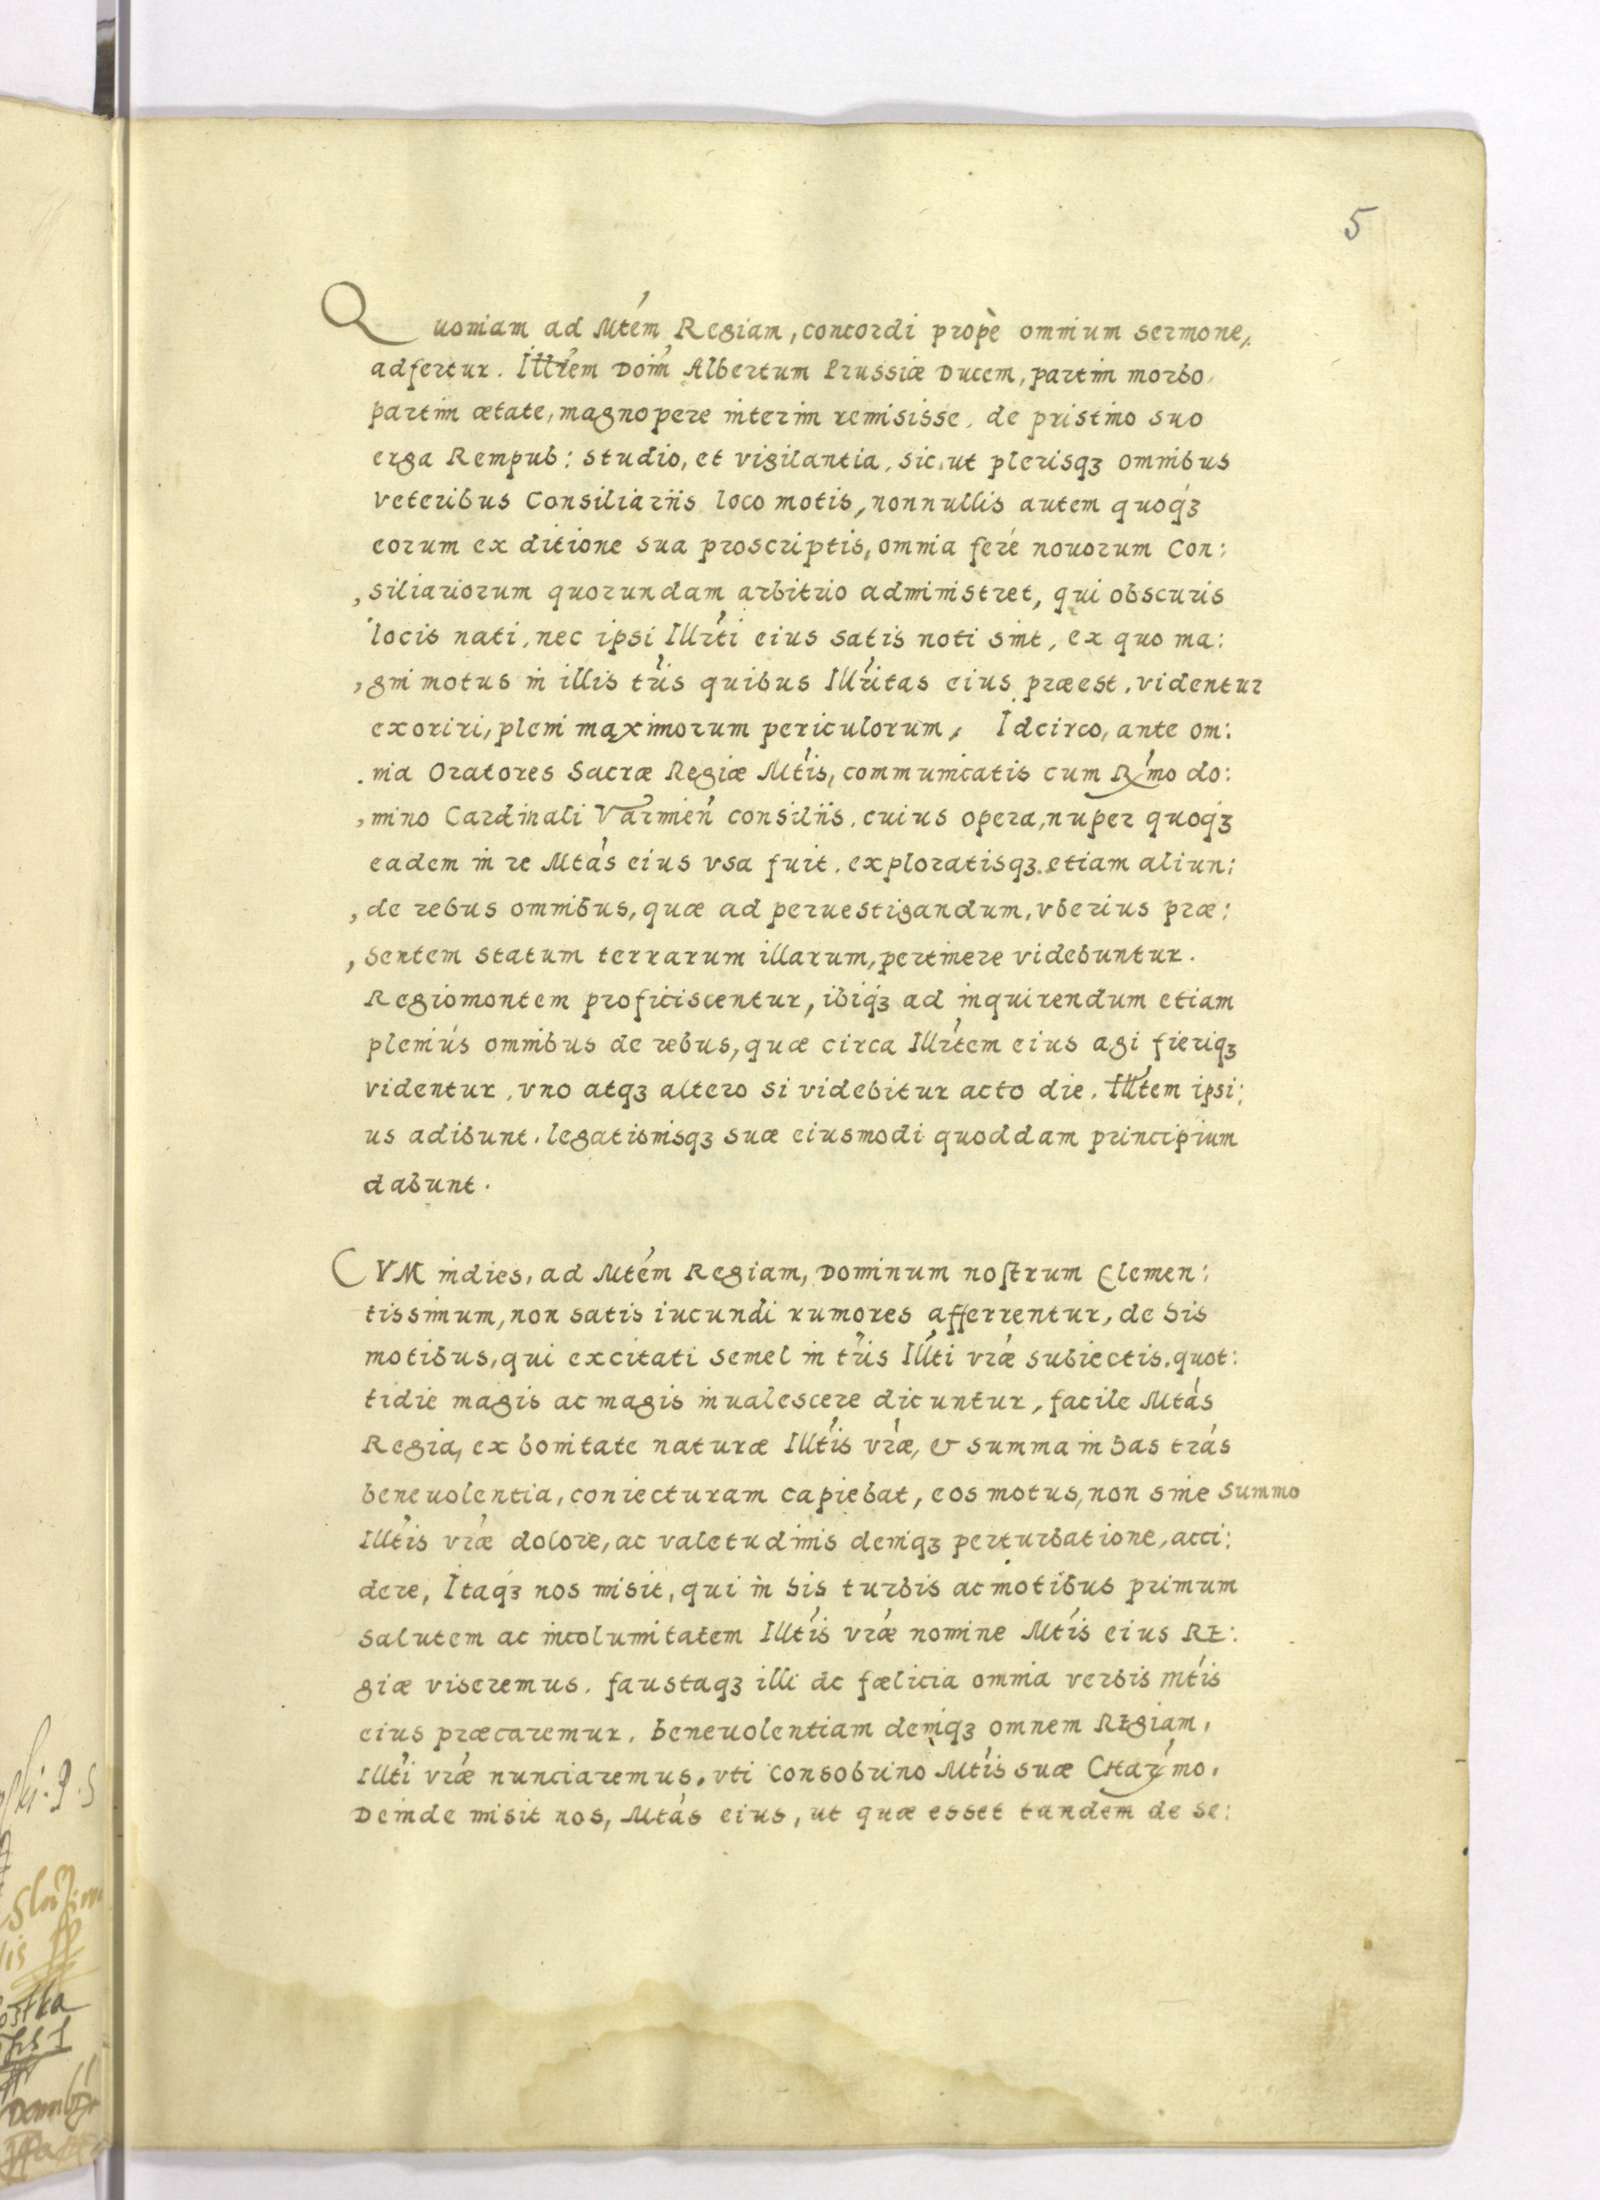 5
Quoniam ad Mtém Regiam, concordi propè omnium sermone,
adfertur. Illrem Doim Albertum Prussiæ Ducem, partim morbo,
partim ætate, magnopere interim remisisse, de pristino suo
erga Rempub: studio, et vigilantia, sic, ut plerisqꝫ omnibus
veteribus Consiliariis loco motis, nonnullis autem quoqꝫ
eorum ex ditione sua proscriptis, omnia feré nouorum Con:
,siliariorum quorundam arbitrio administret, qui obscuris
locis nati, nec ipsi Illrti eius satis noti sint, ex quo ma:
,gni motus in illis tris quibus Illritas eius præest, videntur
exoriri, pleni maximorum periculorum, Idcirco, ante om:
.nia Oratores Sacræ Regiæ Mtis, communicatis cum Rmo do:
,mino Cardinali Varmień consiliis, cuius opera, nuper quoqꝫ
eadem in re Mtás eius vsa fuit, exploratisqꝫ etiam aliun:
,de rebus omnibus, quæ ad peruestigandum, vberius præ:
,sentem statum terrarum illarum, pertinere videbuntur.
Regiomontem proficiscentur, ibiqꝫ ad inquirendum etiam
pleniús omnibus de rebus, quæ circa Illrtem eius agi fieriqꝫ
videntur, vno atqꝫ altero si videbitur acto die. Illtem ipsi:
us adibunt. legationisqꝫ suæ eiusmodi quoddam principium
dabunt.
CVM indies, ad Mtém Regiam, Dominum nostrum Clemen:
tissimum, non satis iucundi rumores afferrentur, de his
motibus, qui excitati semel in tris Illti vræ subiectis, quot:
tidie magis ac magis inualescere dicuntur, facile Mtás
Regia, ex bonitate naturæ Illtis vræ, & summa in has trás
beneuolentia, coniecturam capiebat, eos motus, non sine summo
Illtis vræ dolore, ac valetudinis deniqꝫ perturbatione, acci:
dere, Itaqꝫ nos misit, qui in his turbis ac motibus primum
salutem ac incolumitatem Illtis vræ nomine Mtis eius RE:
giæ viseremus, faustaqꝫ illi ac fælicia omnia verbis Mtis
eius præcaremur, beneuolentiam deniqꝫ omnem REgiam,
Illti vræ nunciaremus, vti consobrino Mtis suæ CHarmo,
Deinde misit nos, Mtás eius, ut quæ esset tandem de se: